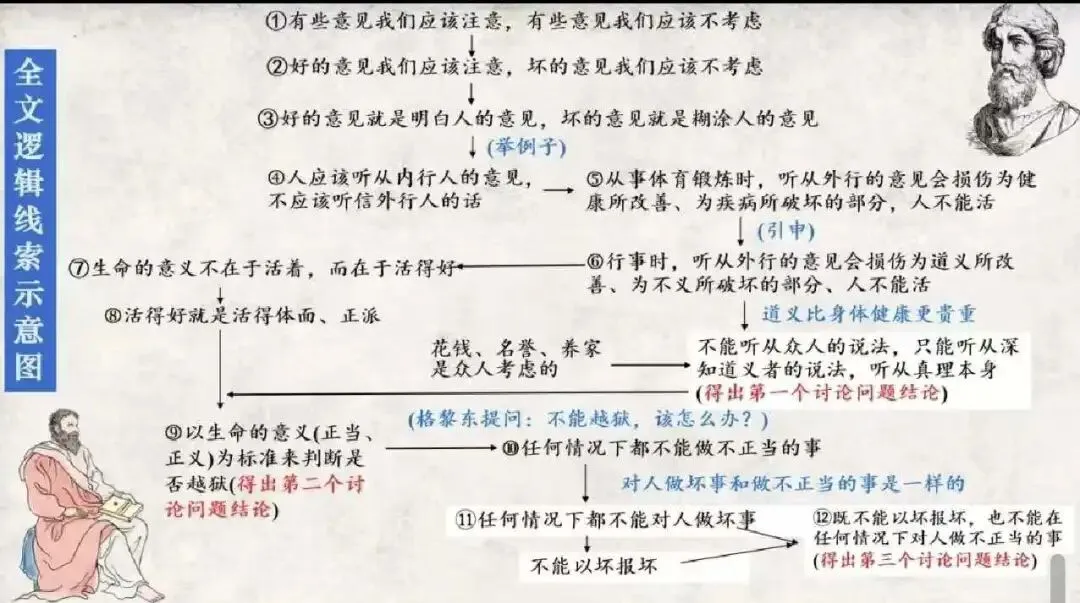 全文逻辑线索示意图
①有些意见我们应该注意，有些意见我们应该不考虑
②好的意见我们应该注意，坏的意见我们应该不考虑
③好的意见就是明白人的意见，坏的意见就是糊涂人的意见
(举例子)
④人应该听从内行人的意见，
不应该听信外行人的话
⑤从事体育锻炼时，听从外行的意见会损伤为健
康所改善、为疾病所破坏的部分，人不能活
(引申)
⑥行事时，听从外行的意见会损伤为道义所改
善、为不义所破坏的部分、人不能活
⑦生命的意义不在于活着，而在于活得好
⑧活得好就是活得体面、正派
道义比身体健康更贵重
花钱、名誉、养家
是众人考虑的
不能听从众人的说法，只能听从深
知道义者的说法，听从真理本身
(得出第一个讨论问题结论)
(格黎东提问：不能越狱，该怎么办？)
⑨以生命的意义(正当、
正义)为标准来判断是
否越狱(得出第二个讨
论问题结论)
⑩任何情况下都不能做不正当的事
对人做坏事和做不正当的事是一样的
⑪任何情况下都不能对人做坏事
不能以坏报坏
⑫既不能以坏报坏，也不能在
任何情况下对人做不正当的事
(得出第三个讨论问题结论)